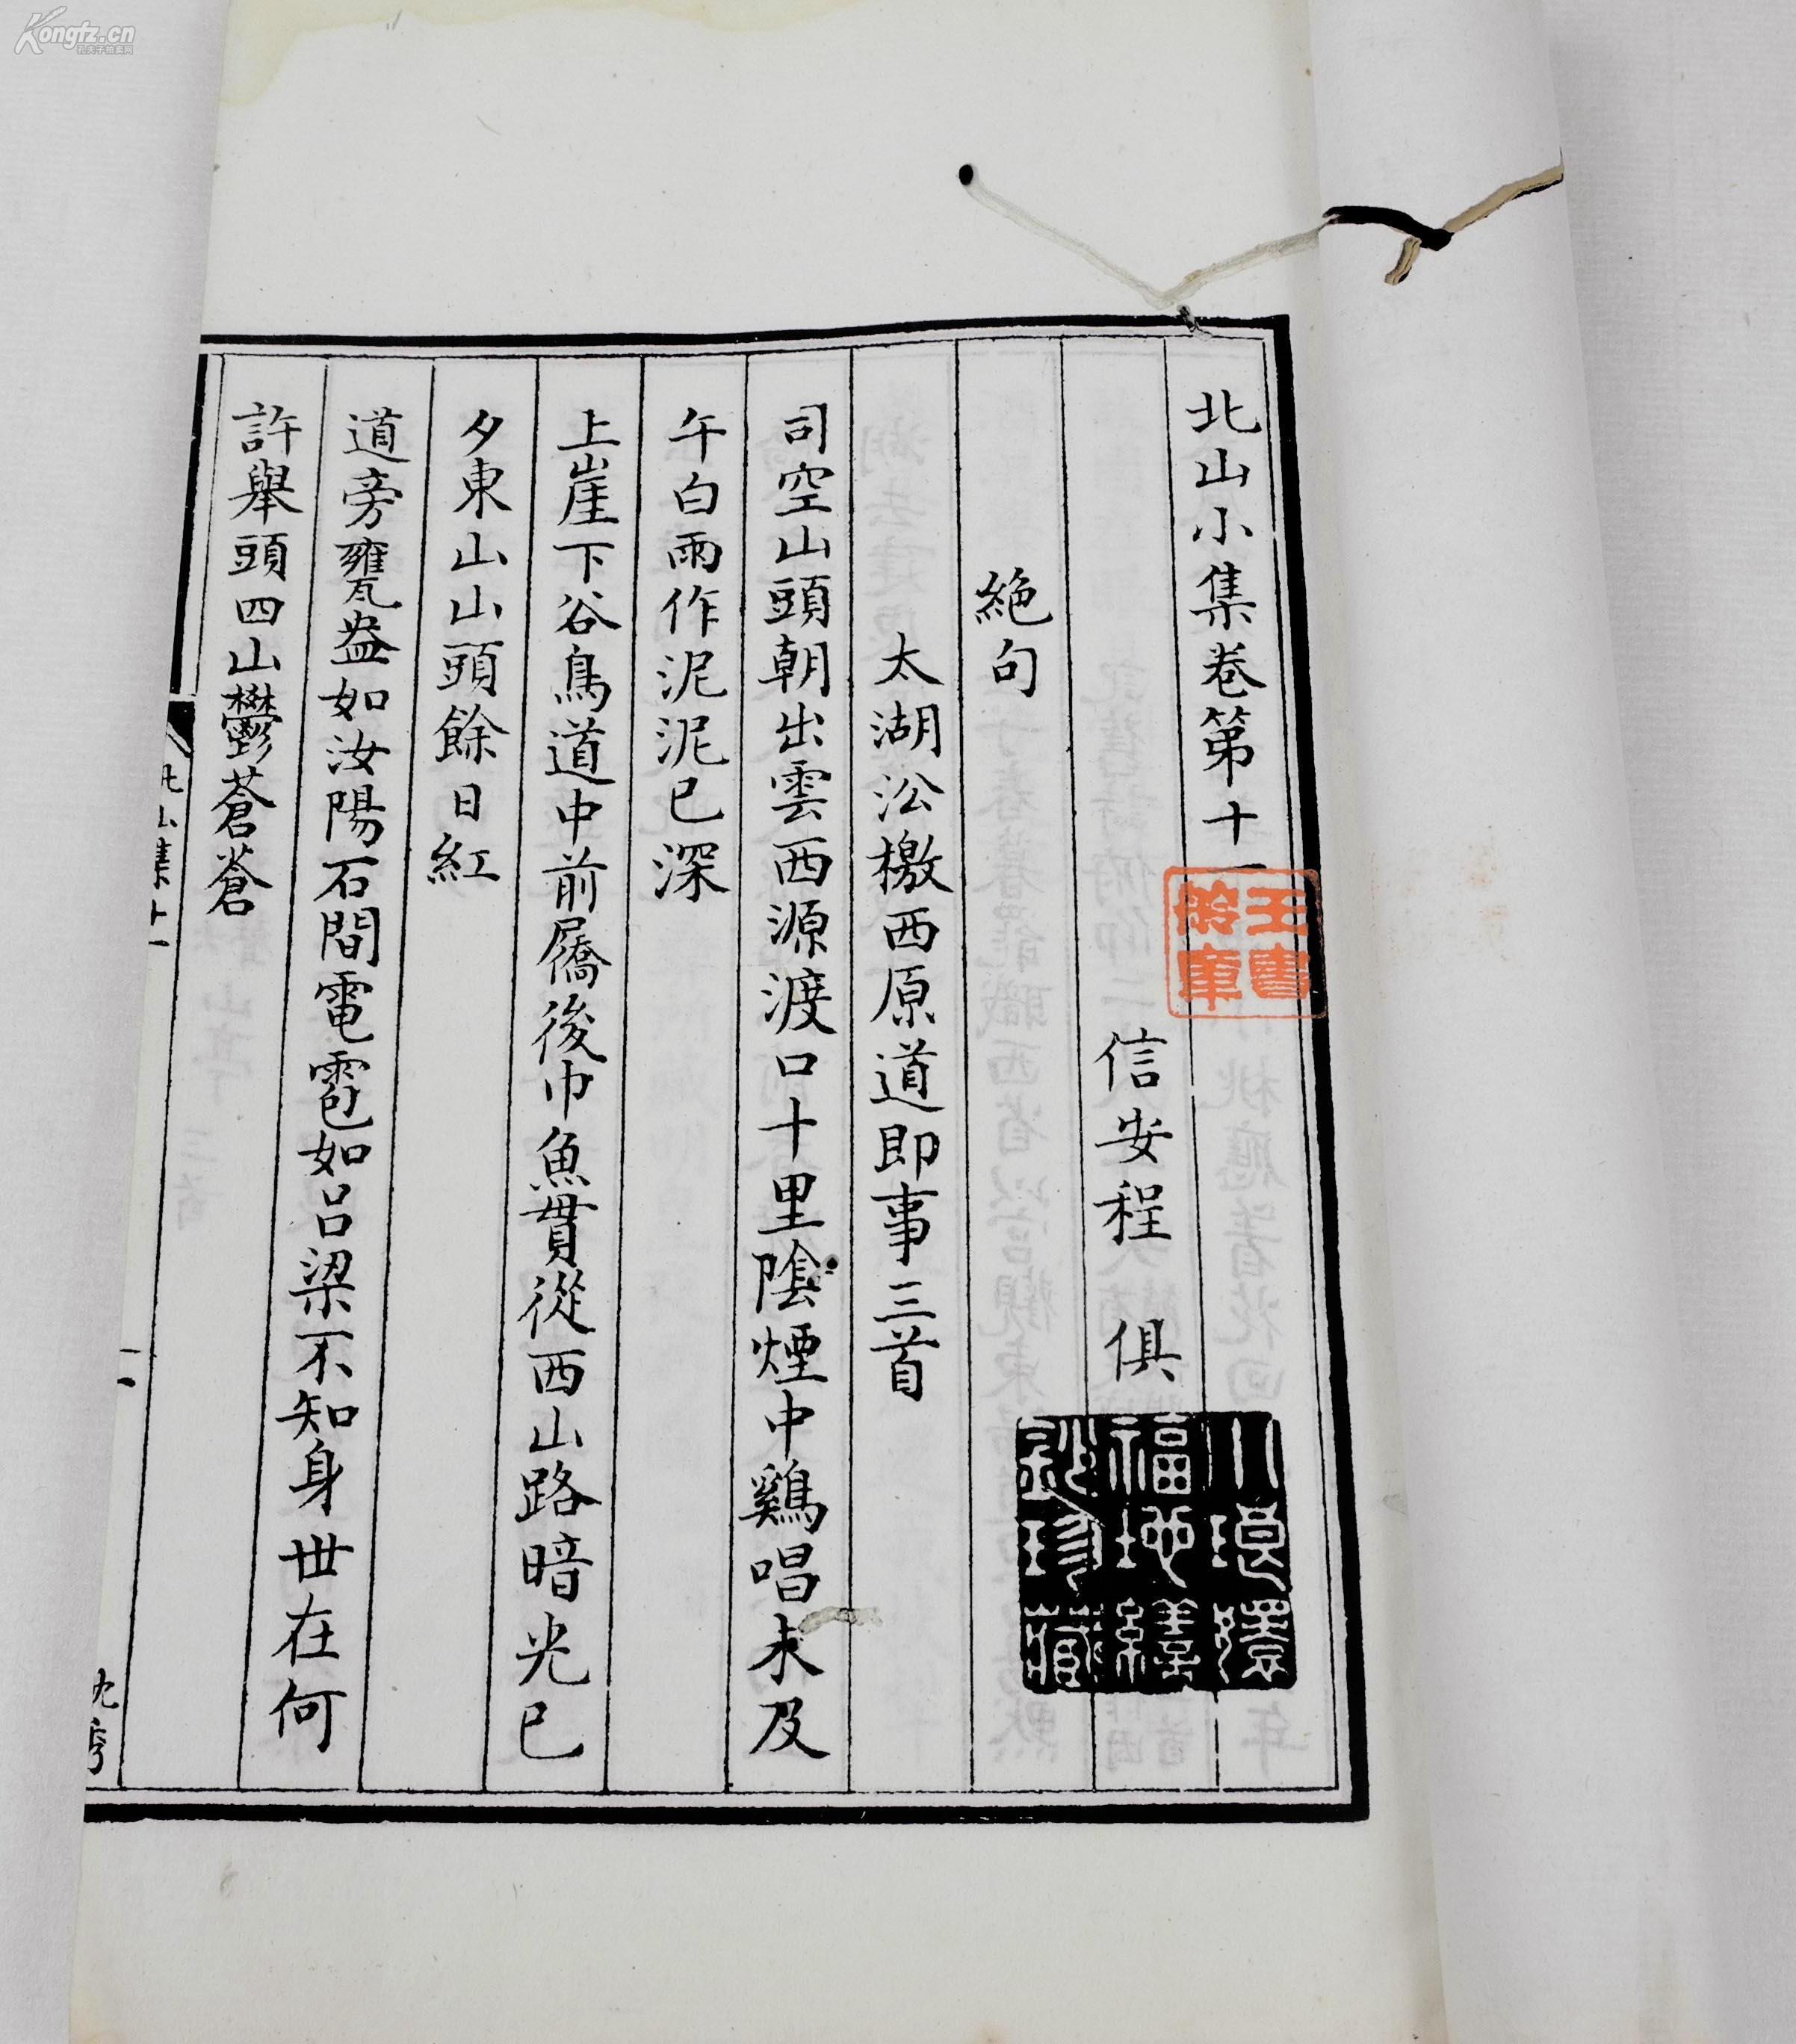 北山小集卷第十一
信安程俱
絶句
太湖沿檄西原道即事三首
司空山頭朝出雲西源渡口十里陰煙中鷄唱未及
午白雨作泥泥已深
上崖下谷鳥道中前屩後巾魚貫從西山路暗光已
夕東山山頭餘日紅
道旁甕盎如汝陽石間電雹如呂梁不知身世在何
許舉頭四山鬱蒼蒼
北山集十一
一
小琅嬛
福地繕
鈔珍藏
Kongfz.cn
孔夫子拍卖网